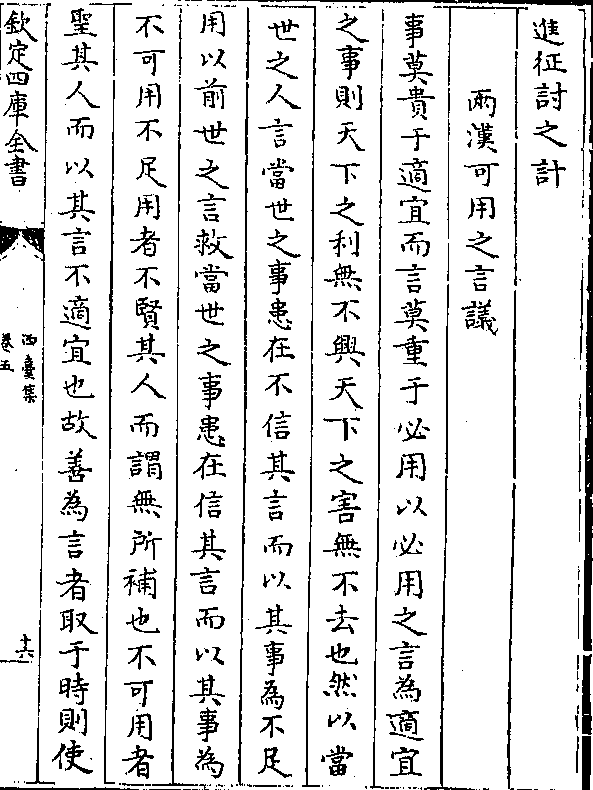 進征討之計
兩漢可用之言議
事莫貴于適宜而言莫重于必用以必用之言為適宜
之事則天下之利無不興天下之害無不去也然以當
世之人言當世之事患在不信其言而以其事為不足
用以前世之言救當世之事患在信其言而以其事為
不可用不足用者不賢其人而謂無所補也不可用者
聖其人而以其言不適宜也故善為言者取于時則使
欽定四庫全書
西臺集
卷五
十六